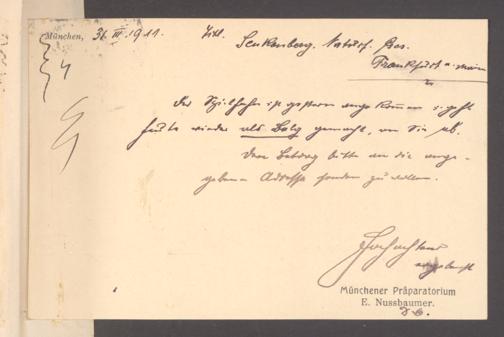 München, 31. III. 1911.
Titl.
Senkenberg. Naturf. Ges.
Frankfurt a. Main
Der Spielhahn ist gestern angekommen u. geht
heute wieder als Balg gemacht, an Sie ab.
Den Betrag bitte an die ange-
gebene Adresse senden zu wollen.
Hochachtend
ergebenst
Münchener Präparatorium
E. Nussbaumer.